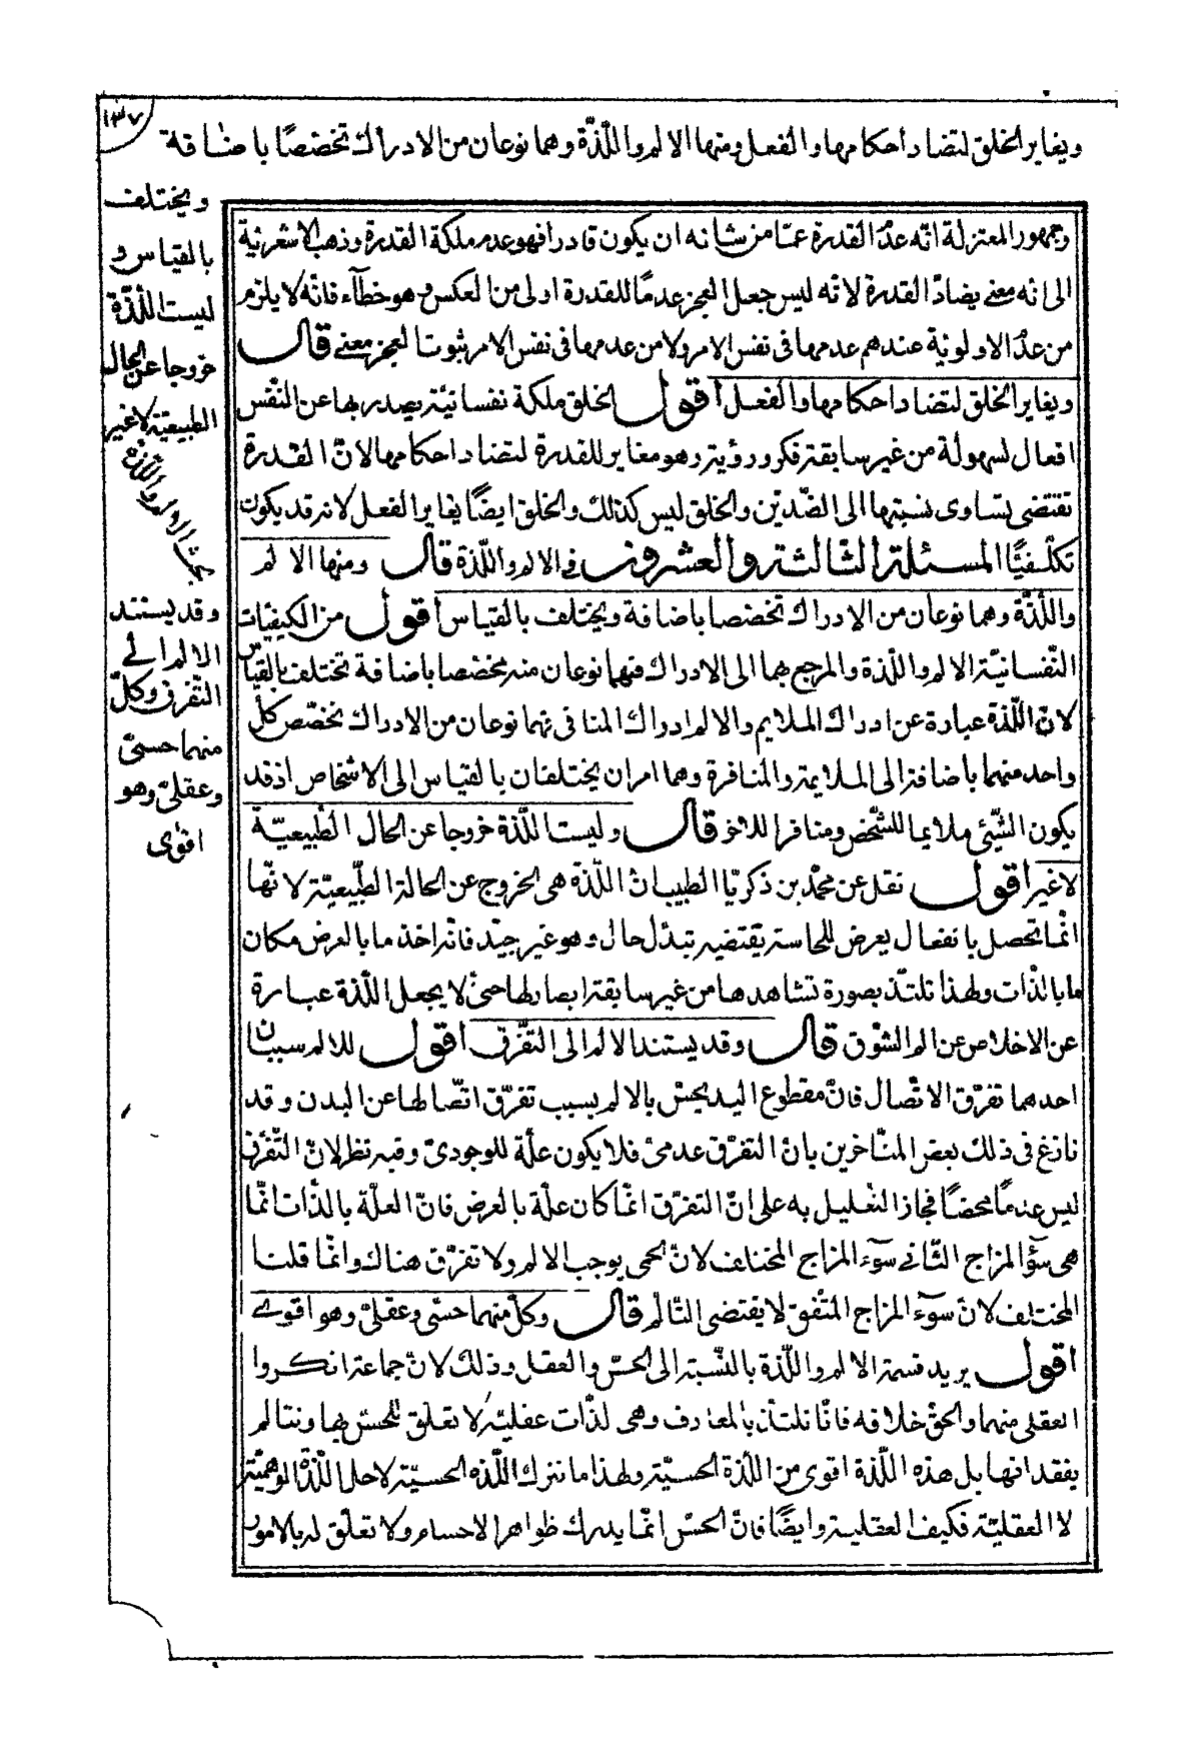 ١٣٧
ويغاير الخلق لتضاد احكامهما والفعل ومنها الالم واللّذّة وهما نوعان من الادراك تخصّصا باضافة
ويختلف
بالقياس و
ليست اللّذّة
خروجا عن الحال
الطبيعيّة لا غير
بحث الالم واللّذة
وقد يستند
الالم الى
التّفرق وكلّ
منهما حسىّ
وعقلىّ وهو
اقوٰى
وجمهور المعتزلة انّه عدم القدرة عمّا من شانه ان يكون قادرا فهو عدم ملكة القدرة وذهب الاشعريّة
الى انه معنى يضادّ القدرة لانّه ليس جعل العجز عدمًا للقدرة اولى من العكس وهو خطآء فانّه لا يلزم
من عدم الاولويّة عندهم عدمها فى نفس الامر ولا من عدمها فى نفس الامر ثبوت العجز معنى قال
ويغاير الخلق لتضاد احكامهما والفعل اقول الخلق ملكة نفسانيّة يصدر بها عن النّفس
افعال بسهولة من غير سابقة فكر ورؤية وهو مغاير للقدرة لتضاد احكامهما لانّ القدرة
تقتضى تساوى نسبتها الى الضّدين والخلق ليس كذلك والخلق ايضًا يغاير الفعل لانه قد يكون
تكليفيًّا المسئلة الثّالثة والعشرون فى الالم واللّذة قال ومنها الالم
واللّذّة وهما نوعان من الادراك تخصّصا باضافة ويختلف بالقياس اقول من الكيفيّات
النّفسانيّة الالم واللّذة والمرجع بهما الى الادراك فهما نوعان منه تخصّصا باضافة تختلف بالقياس
لانّ اللّذة عبارة عن ادراك الملايم والالم ادراك المنافى فهما نوعان من الادراك تخصّص كلّ
واحد منهما باضافة الى الملايمة والمنافرة وهما امران يختلفان بالقياس الى الاشخاص اذ قد
يكون الشّيئ ملايما للشّخص ومنافرا للاخر قال وليست اللّذة خروجا عن الحال الطّبيعيّة
لا غير اقول نقل عن محمّد بن زكريّا الطبيب انّ اللّذة هى الخروج عن الحالة الطّبيعيّة لانّها
انّما تحصل بانفعال يعرض للحاسة يقتضيه تبدّل حال وهو غير جيّد فانّه اخذ ما بالعرض مكان
ما بالذّات ولهذا نلتذّ بصورة نشاهدها من غير سابقة ابصار لها حتى لا يجعل اللّذة عبارة
عن الاخلاص عن الم الشّوق قال وقد يستند الالم الى التّفرّق اقول للالم سببان
احدهما تفرّق الاتّصال فانّ مقطوع اليد يحسّ بالالم بسبب تفرّق اتّصالها عن البدن وقد
نازع فى ذلك بعض المتأخرين بانّ التفرّق عدمىّ فلا يكون علّة للوجودىّ وفيه نظر لانّ التّفرّق
ليس عدمًا محضًا فجاز التعليل به على انّ التفرّق انّما كان علّة بالعرض فانّ العلّة بالذّات انّما
هى سوٓء المزاج الثّانى سوٓء المزاج المختلف لانّ الحمى يوجب الالم ولا تفرّق هناك وانّما قلنا
المختلف لانّ سوٓء المزاج المتّفق لا يقتضى التّألم قال وكلّ منهما حسّى وعقلىّ وهو اقوى
اقول يريد قسمة الالم واللّذة بالنّسبة الى الحسّ والعقل وذلك لانّ جماعة انكروا
العقلى منهما والحقّ خلافه فانّا نلتذّ بالمعارف وهى لذّات عقليّة لا تعلّق للحسّ بها ونتألم
بفقدانها بل هذه اللّذة اقوى من اللّذة الحسيّة ولهذا ما نترك اللّذه الحسيّة لاجل اللّذة الوهميّة
لا العقليّة فكيف العقلية وايضًا فانّ الحسّ انّما يدرك ظواهر الاجسام ولا تعلّق له بالامور